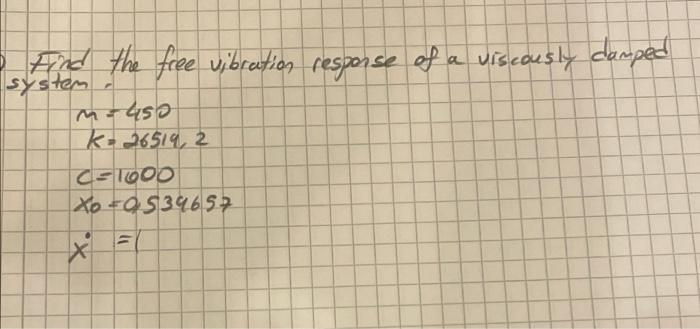 Find the free vibration response of a viscously damped
system.
m = 450
k = 26519,2
c = 1000
x0 = 0,539657
ẋ = 1